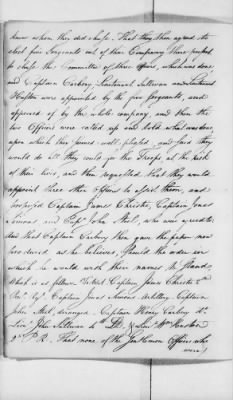 knew whom they did chuse. That they then agreed to
elect five Sergeants out of their Company thus prepared
to chuse the Committee of three Officers, which was done,
and Captain Carbery, Lieutenant Sullivan and Lieutenant
Huston were appointed by the five Sergeants, and
approved of by the whole company, and then the
two Officers were called up and told what was done,
upon which they seemed well pleased, and said they
would do all they could for the Troops at the risk
of their lives, and then requested that they would
appoint three other Officers to assist them, and
proposed Captain James Christie, Captain Jonas
Simonds and Capt John Stil, who were
and that Captain Carbery then gave the paper now
produced, as he believes, the order in
which he would wish these names to stand
which is as follows. Captain James Christie 2d
Captain Jonas Simonds Artillery, Captain
John Stil, deranged, Captain Henry Carbery do
Lieut John Sullivan 4th L.D. & Lieut Wm Huston
2d P.R. That none of the Gentlemen Officers who
were